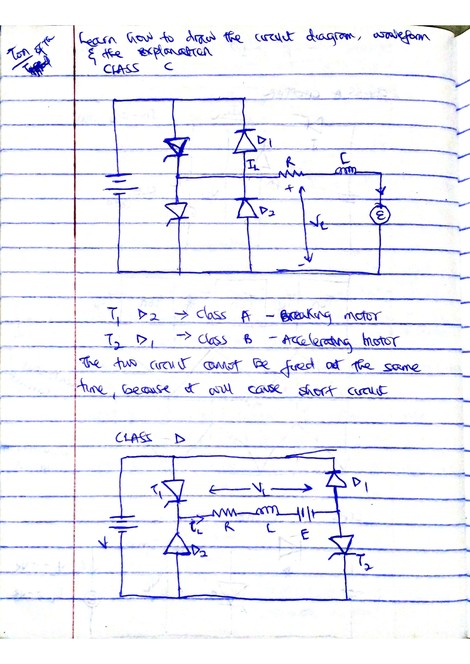 Learn how to draw the circuit diagram, waveform
& the explanation
CLASS C
D1
IL
R
L
+
VL
E
D2
-
T1 D2 → class A - Breaking motor
T2 D1 → class B - Accelerating motor
The two circuit cannot be fired at the same
time, because it will cause short circuit
CLASS D
T1
VL
D1
iL
R
L
E
V
D2
T2